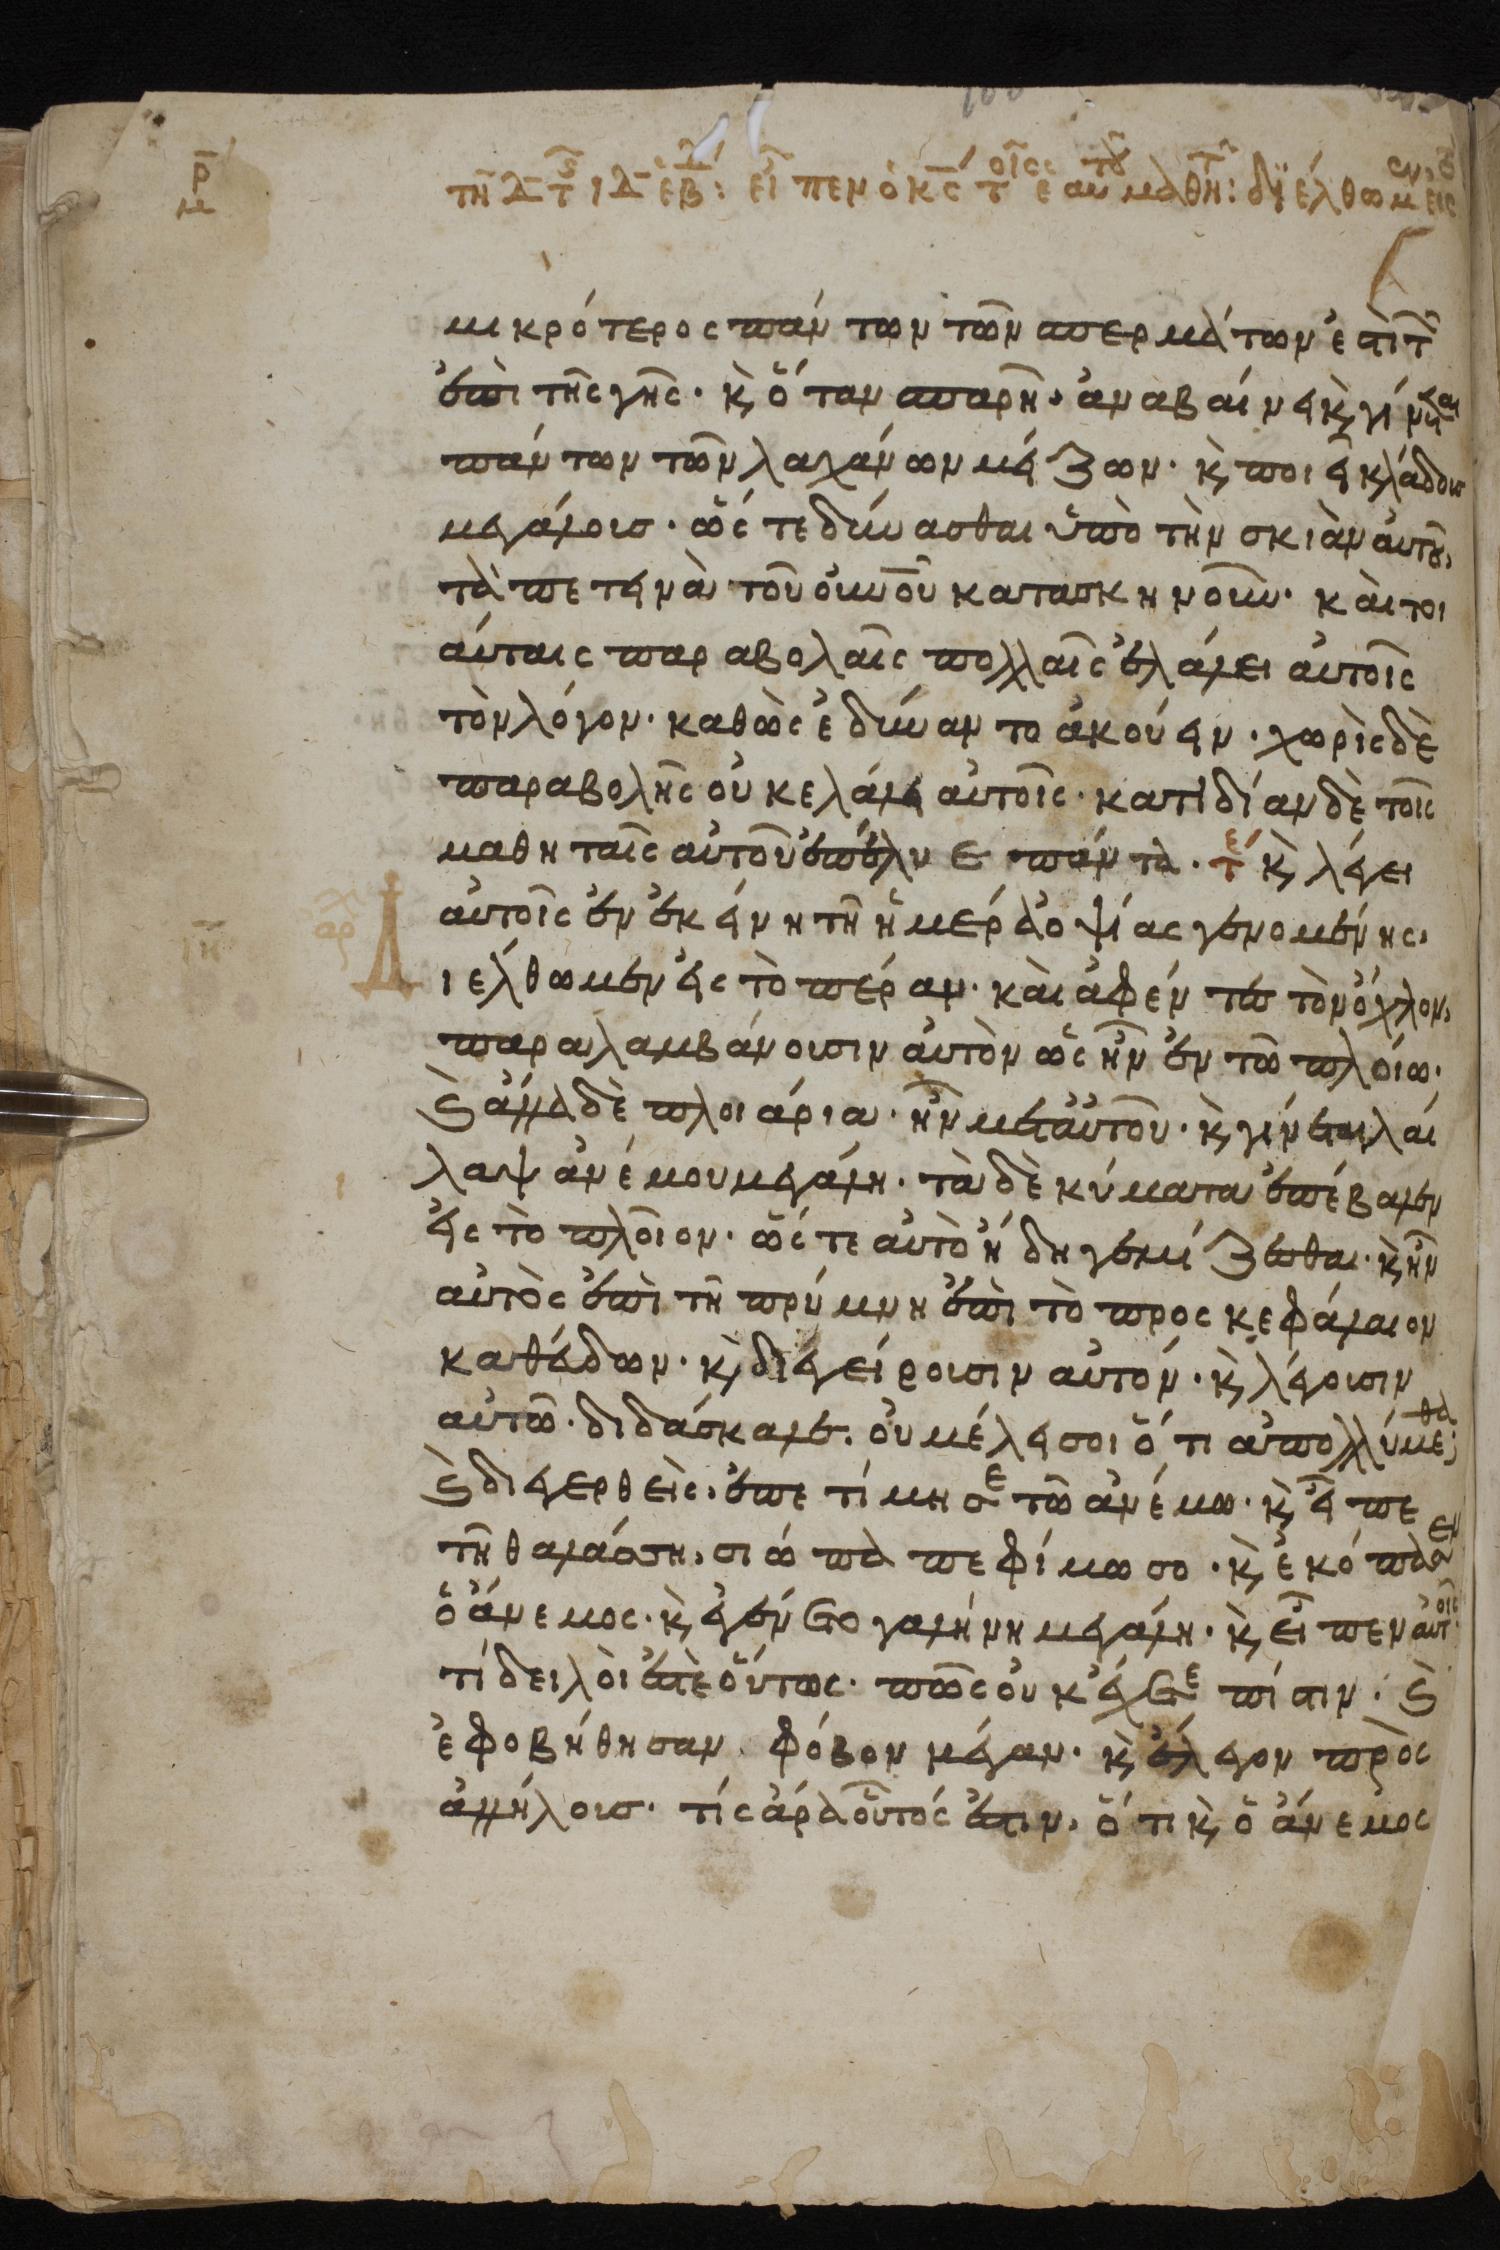 ρ
μ
τῆ Δ τ ΙΔ ἑβ: εἶπεν ὁ κς τοῖς ἑαυτοῦ μαθη: διέλθωμεν εἰς
μικρότερος πάντων τῶν σπερμάτων ἐστὶ τῶν
ἐπὶ τῆς γῆς. κ ὅταν σπαρῆ, ἀναβαίνει κ γίνεται
πάντων τῶν λαχάνων μείζων. κ ποιεῖ κλάδους
μεγάλους. ὥστε δύνασθαι ὑπὸ τὴν σκιὰν αὐτοῦ,
τὰ πετεινὰ τοῦ οὐνοῦ κατασκηνοῦν. καὶ τοι
αύταις παραβολαῖς πολλαῖς ἐλάλει αὐτοῖς
τὸν λόγον. καθὼς ἐδύναντο ἀκούειν. χωρὶς δὲ
παραβολῆς οὐκ ἐλάλει αὐτοῖς. κατιδίαν δὲ τοῖς
μαθηταῖς αὐτοῦ ἐπέλυε πάντα. τέ κ λέγει
αὐτοῖς ἐν ἐκείνη τῆ ἡμέρα ὀψίας γενομένης.
ἀρ
Διέλθωμεν εἰς τὸ πέραν. καὶ ἀφέντες τὸν ὄχλον,
παραλαμβάνουσιν αὐτὸν ὡς ἦν ἐν τῶ πλοίω.
κ ἄλλα δὲ πλοιάρια. ἦν μετ αὐτοῦ. κ γίνεται λαί
λαψ ἀνέμου μεγάλη. τὰ δὲ κύματα ἐπέβαλεν
εἰς τὸ πλοῖον. ὥστε αὐτὸ ἤδη γεμίζεσθαι. κ ἦν
αὐτὸς ἐπὶ τῆ πρύμνη ἐπὶ τὸ προσκεφάλαιον
καθεύδων. κ διεγείρουσιν αὐτόν. κ λέγουσιν
αὐτῶ. διδάσκαλε. οὐ μέλει σοι ὅτι ἀπολλύμεθα;
κ διεγερθεὶς. ἐπετίμησε τῶ ἀνέμω. κ εἶπε
τῆ θαλάσση, σιώπα πεφίμωσο. κ ἐκόπασεν
ὁ ἄνεμος. κ ἐγένετο γαλήνη μεγάλη. κ εἶπεν αὐτοῖς
τί δειλοὶ ἐστὲ οὕτως. πῶς οὐκ ἔχετε πίστιν. κ
ἐφοβήθησαν φόβον μέγαν. κ ἔλεγον πρὸς
ἀλλήλους. τίς ἄρα οὗτός ἐστιν, ὅτι κ ὁ ἄνεμος